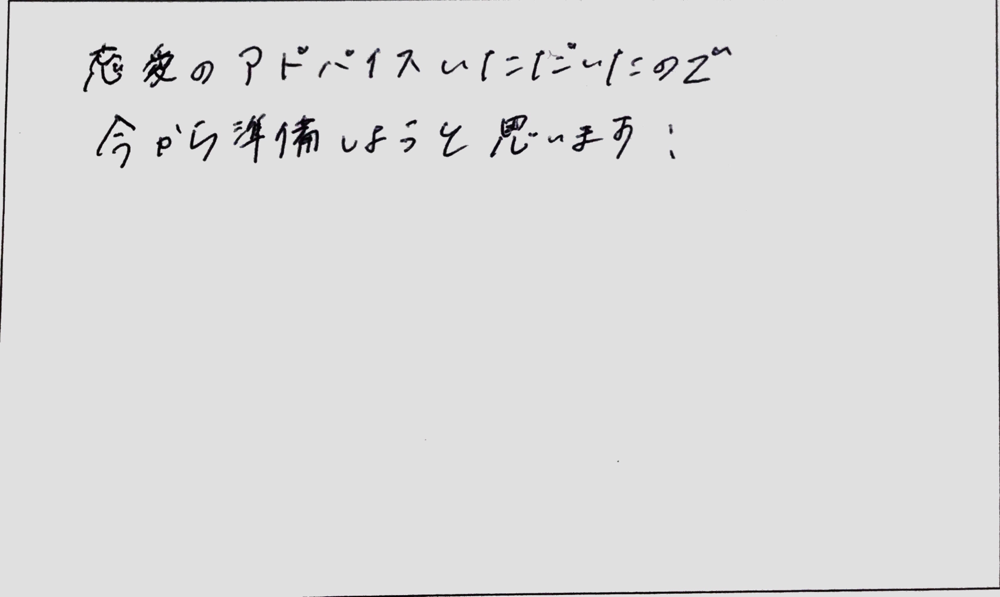 恋愛のアドバイスいただいたので
今から準備しようと思います!